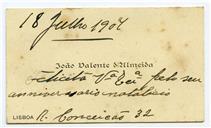 18 Julho 1904
João Valente d'Almeida
felicita V.ª Ex.ª pelo seu
anniversario natalicio
LISBOA R. Conceição 32